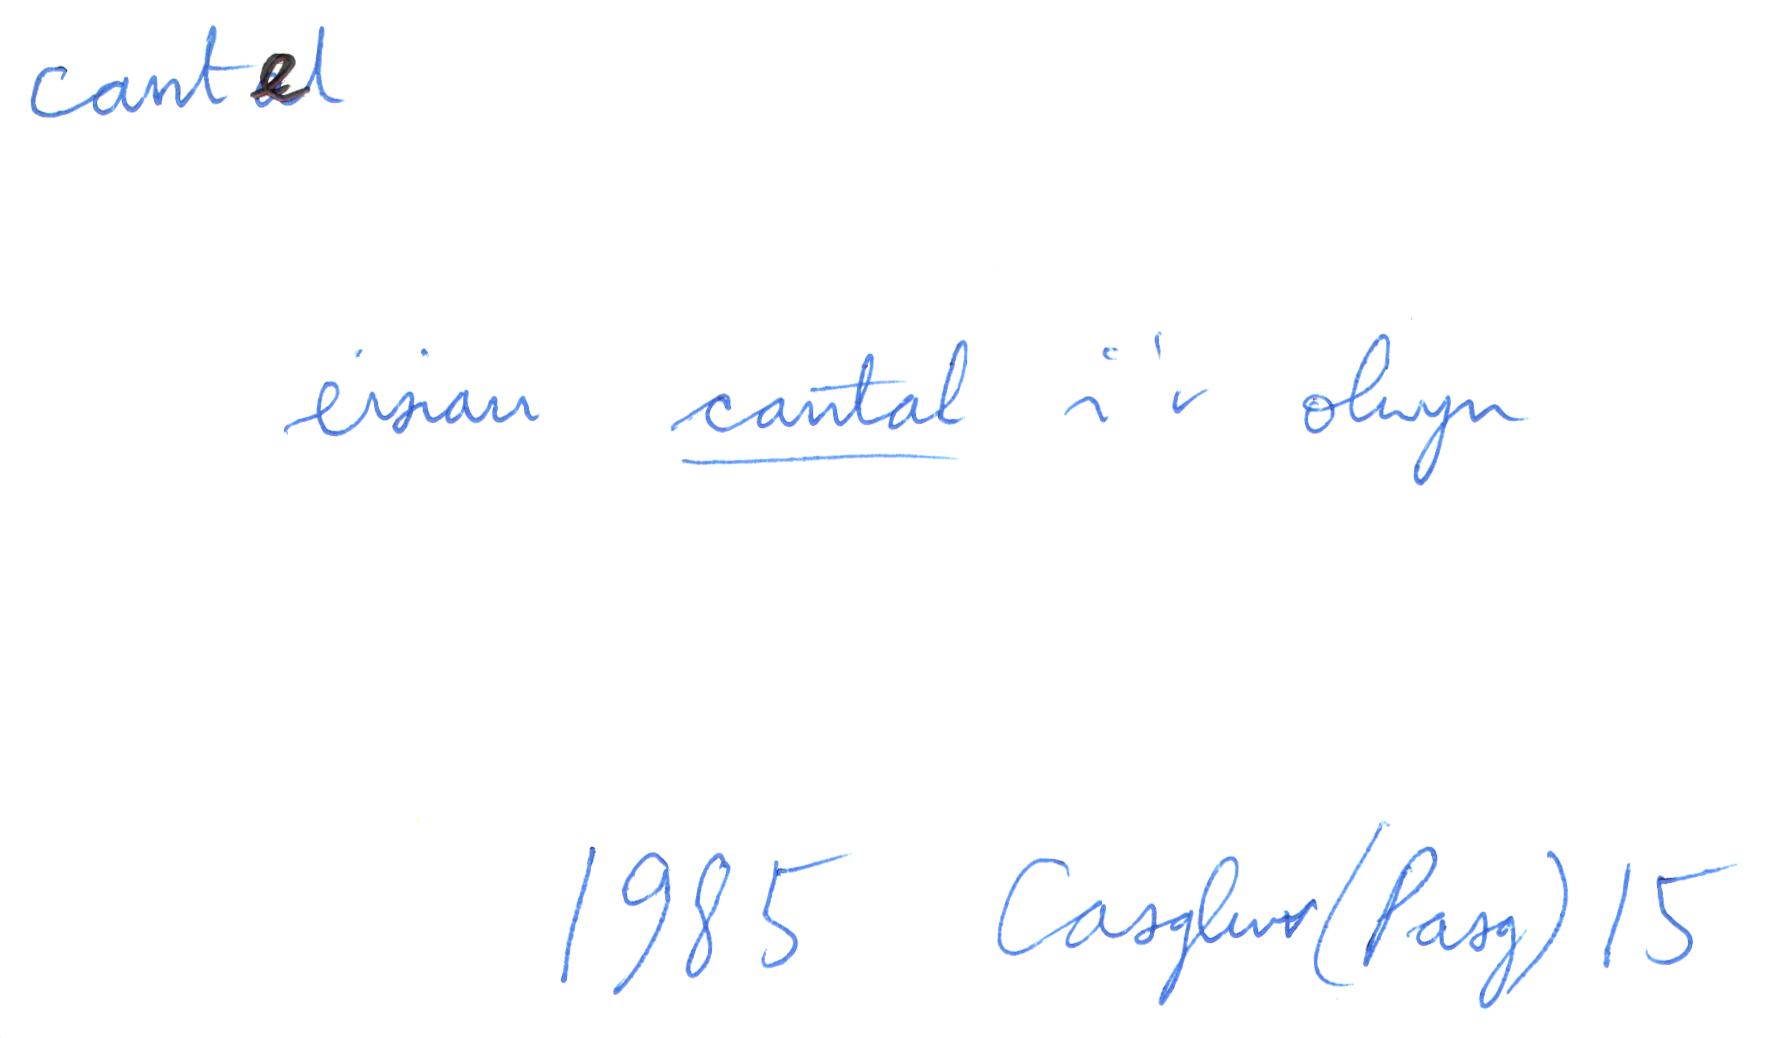 cantel
eisiau cantal i'r olwyn
1985 Casglwr (Pasg) 15